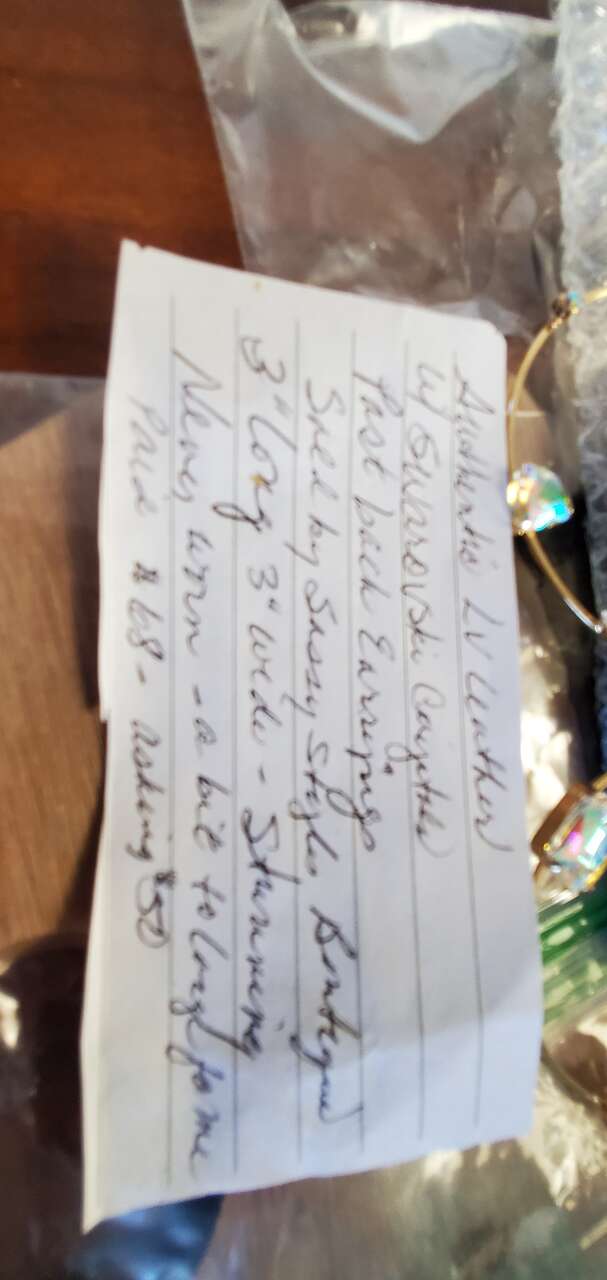 Authentic LV Leather
w/ Swarovski Crystals
Post back Earrings
Sold by Sassy Styles Boutique
3" long 3" wide - Stunning
Never worn - a bit to large for me
Paid $68 - asking $50